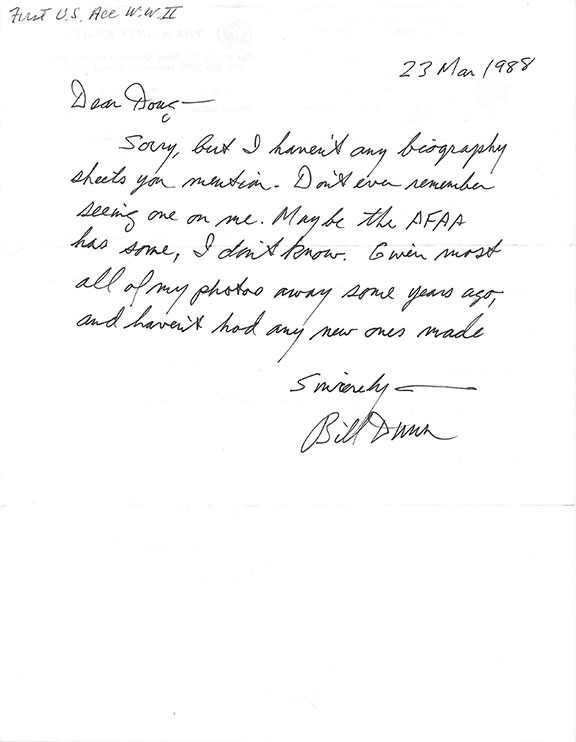 First U.S. Ace W.W.II
23 Mar 1988
Dear Doug —
Sorry, but I haven't any biography
sheets you mention. Don't ever remember
seeing one on me. Maybe the AFAA
has some, I don't know. Given most
all of my photos away some years ago,
and haven't had any new ones made
Sincerely —
Bill Dunn